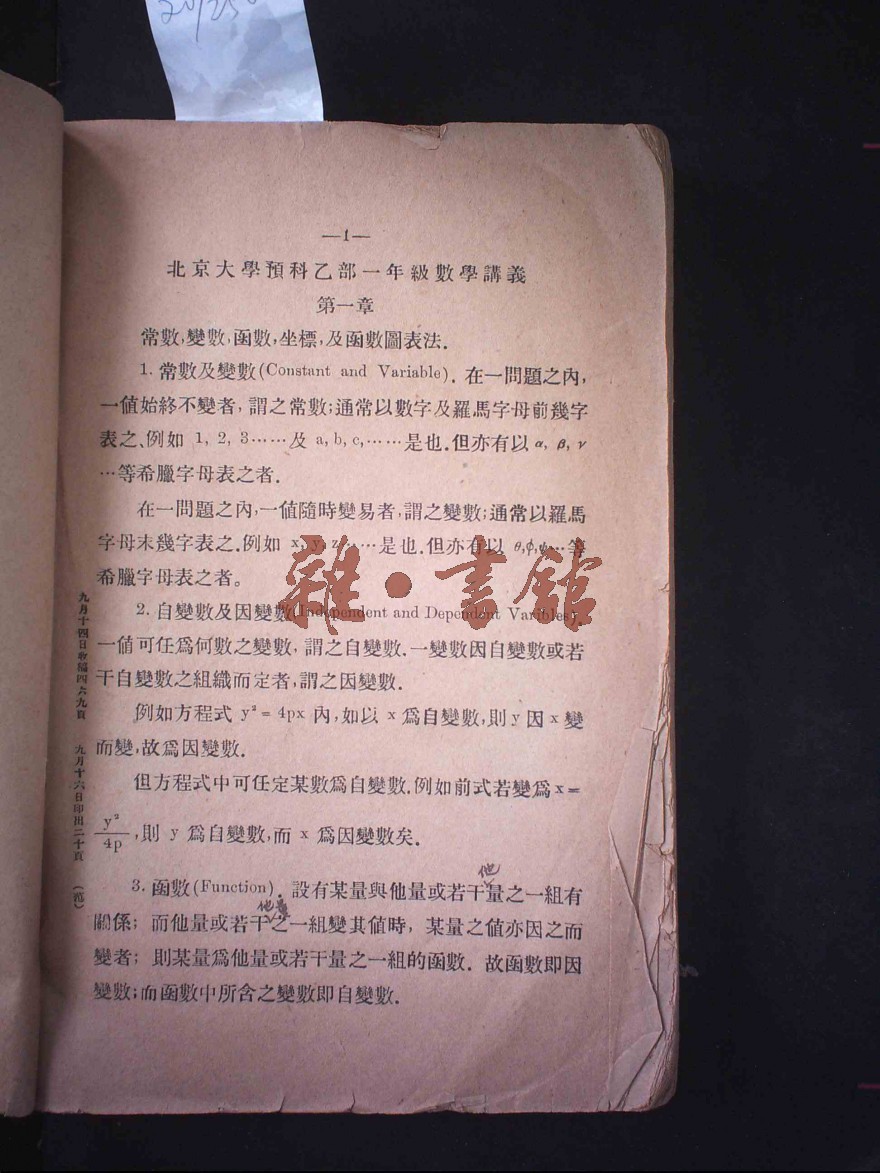 —1—
北京大學預科乙部一年級數學講義
第一章
常數,變數,函數,坐標,及函數圖表法.
1. 常數及變數(Constant and Variable). 在一問題之內,
一値始終不變者, 謂之常數;通常以數字及羅馬字母前幾字
表之.例如 1, 2, 3……及 a, b, c,……是也.但亦有以 α, β, γ
…等希臘字母表之者.
在一問題之內,一値隨時變易者,謂之變數;通常以羅馬
字母末幾字表之.例如 x, y, z……是也.但亦有以 θ,φ,ψ…等
希臘字母表之者。
2. 自變數及因變數(Independent and Dependent Varibles).
一値可任爲何數之變數, 謂之自變數.一變數因自變數或若
干自變數之組織而定者,謂之因變數.
例如方程式 y² = 4px 內,如以 x 爲自變數,則 y 因 x 變
而變,故爲因變數.
但方程式中可任定某數爲自變數.例如前式若變爲 x =
y²/4p ,則 y 爲自變數,而 x 爲因變數矣.
3. 函數(Function). 設有某量與他量或若干量之一組有
他
關係; 而他量或若干之一組變其値時, 某量之値亦因之而
他量
變者; 則某量爲他量或若干量之一組的函數. 故函數即因
變數;而函數中所含之變數即自變數.
九月十四日收稿四六九頁
九月十六日印出二十頁
(范)
雜·書館